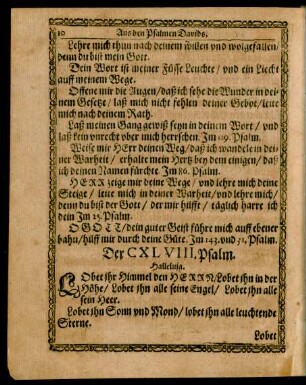 10 Aus den Psalmen Davids,
Lehre mich thun nach deinem willen vnd wolgefallen/
denn du bist mein Gott.
Dein Wort ist meiner Füsse Leuchte/ vnd ein Liecht
auff meinem Wege.
Offene mir die Augen/ daß ich sehe die Wunder in dei-
nem Gesetz/ laß mich nicht fehlen deiner Gebot/ leite
mich nach deinem Rath.
Laß meinen Gang gewiß seyn in deinem Wort/ vnd
laß kein vnrecht vber mich herrschen. Im 119. Psalm.
Weise mir HErr deinen Weg/ daß ich wandele in dei-
ner Warheit/ erhalte mein Hertz bey dem einigen/ daß
ich deinen Namen fürchte. Im 86. Psalm.
HERR zeige mir deine Wege/ vnd lehre mich deine
Steige/ leite mich in deiner Warheit/ vnd lehre mich/
denn du bist der Gott/ der mir hilfft/ täglich harre ich
dein Im 25. Psalm.
O GOTT/ dein guter Geist führe mich auff ebener
bahn/ hilff mir durch deine Güte. Im 143. vnd 31. Psalm.
Der CXLVIII. Psalm.
Halleluja.
LObet jhr Himmel den HERRN/ Lobet jhn in der
Höhe/ Lobet jhn alle seine Engel/ Lobet jhn alle
sein Heer.
Lobet jhn Sonn vnd Mond/ lobet jhn alle leuchtende
Sterne.
Lobet